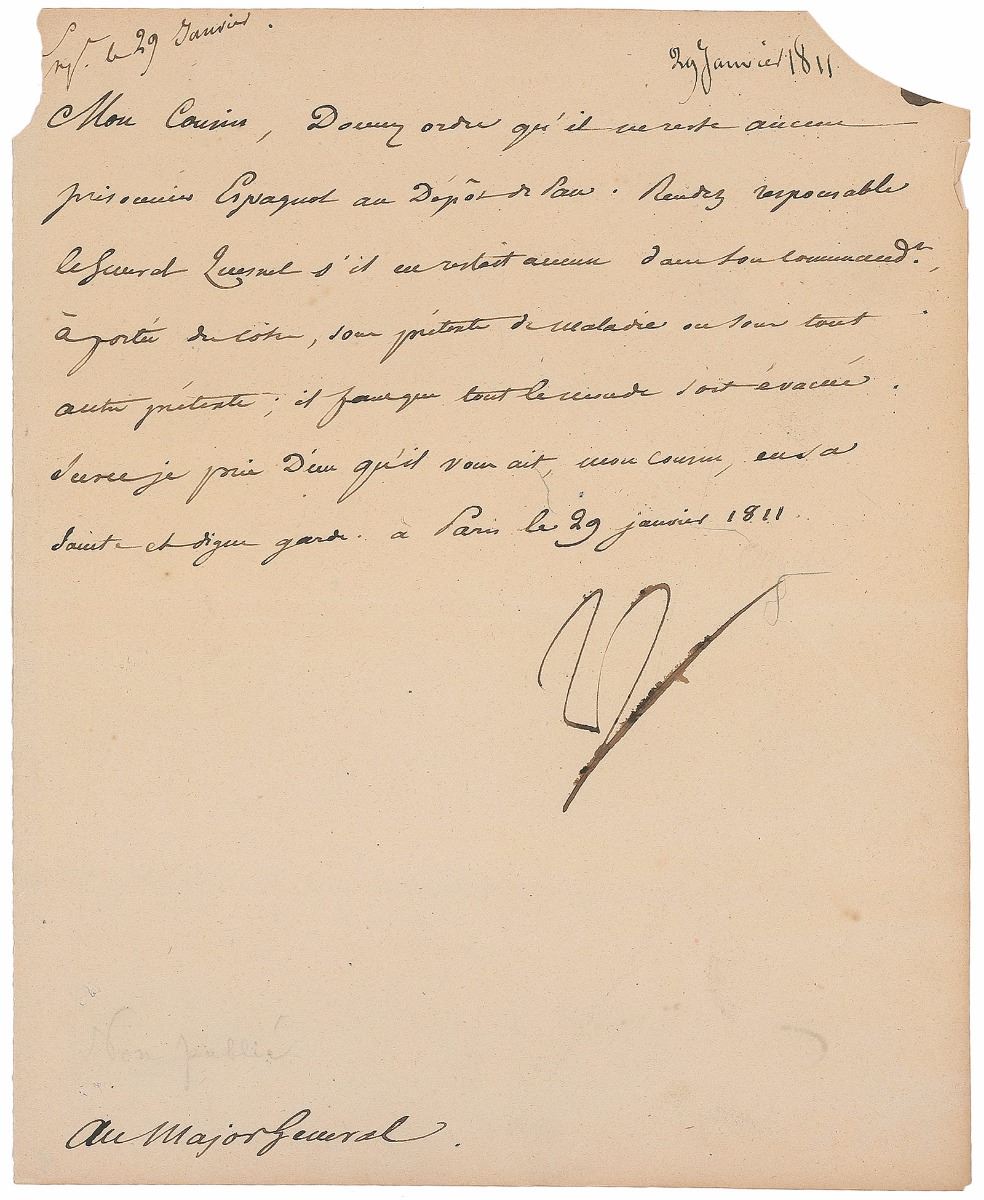 le 29 Janvier.
29 Janvier 1811
Mon Cousin, Donnez ordre qu'il ne reste aucun
prisonnier Espagnol au Dépôt de Pau. Rendez responsable
le Général Quesnel s'il en restait aucun dans son command.t,
à portée du côté, sous prétexte de maladie ou sous tout
autre prétexte; il faut que tout le monde soit évacué.
Sur ce je prie Dieu qu'il vous ait, mon cousin, en sa
sainte et digne garde. à Paris le 29 janvier 1811.
Non publié
Au Major Général.